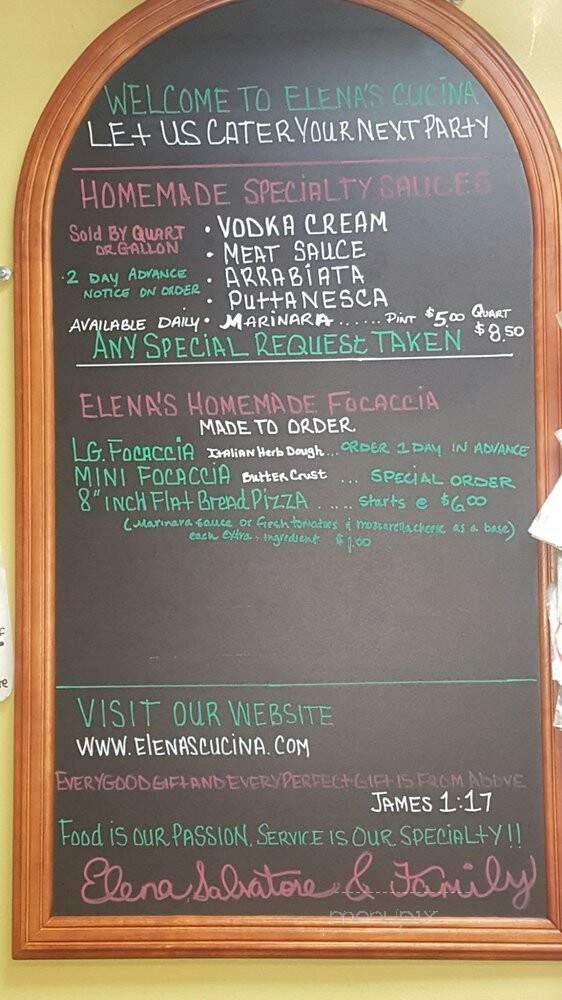 WELCOME TO ELENA'S CUCINA
LET US CATER YOUR NEXT PARTY
HOMEMADE SPECIALTY SAUCES
Sold BY QUART OR GALLON
· VODKA CREAM
· MEAT SAUCE
· 2 DAY ADVANCE NOTICE ON ORDER
· ARRABIATA
· PUTTANESCA
AVAILABLE DAILY · MARINARA ...... PINT $5.00 QUART $8.50
ANY SPECIAL REQUEST TAKEN
ELENA'S HOMEMADE FOCACCIA
MADE TO ORDER
LG. FOCACCIA Italian Herb Dough... ORDER 1 DAY IN ADVANCE
MINI FOCACCIA Butter Crust ... SPECIAL ORDER
8" INCH Flat Bread Pizza ..... Starts @ $6.00
(Marinara sauce or fresh tomatoes & mozzarella cheese as a base)
each extra - ingredient $1.00
VISIT OUR WEBSITE
WWW.ELENASCUCINA.COM
EVERY GOOD GIFT AND EVERY PERFECT GIFT IS FROM ABOVE
JAMES 1:17
FOOD IS OUR PASSION, SERVICE IS OUR SPECIALTY!!
Elena, Salvatore & Family
menupix